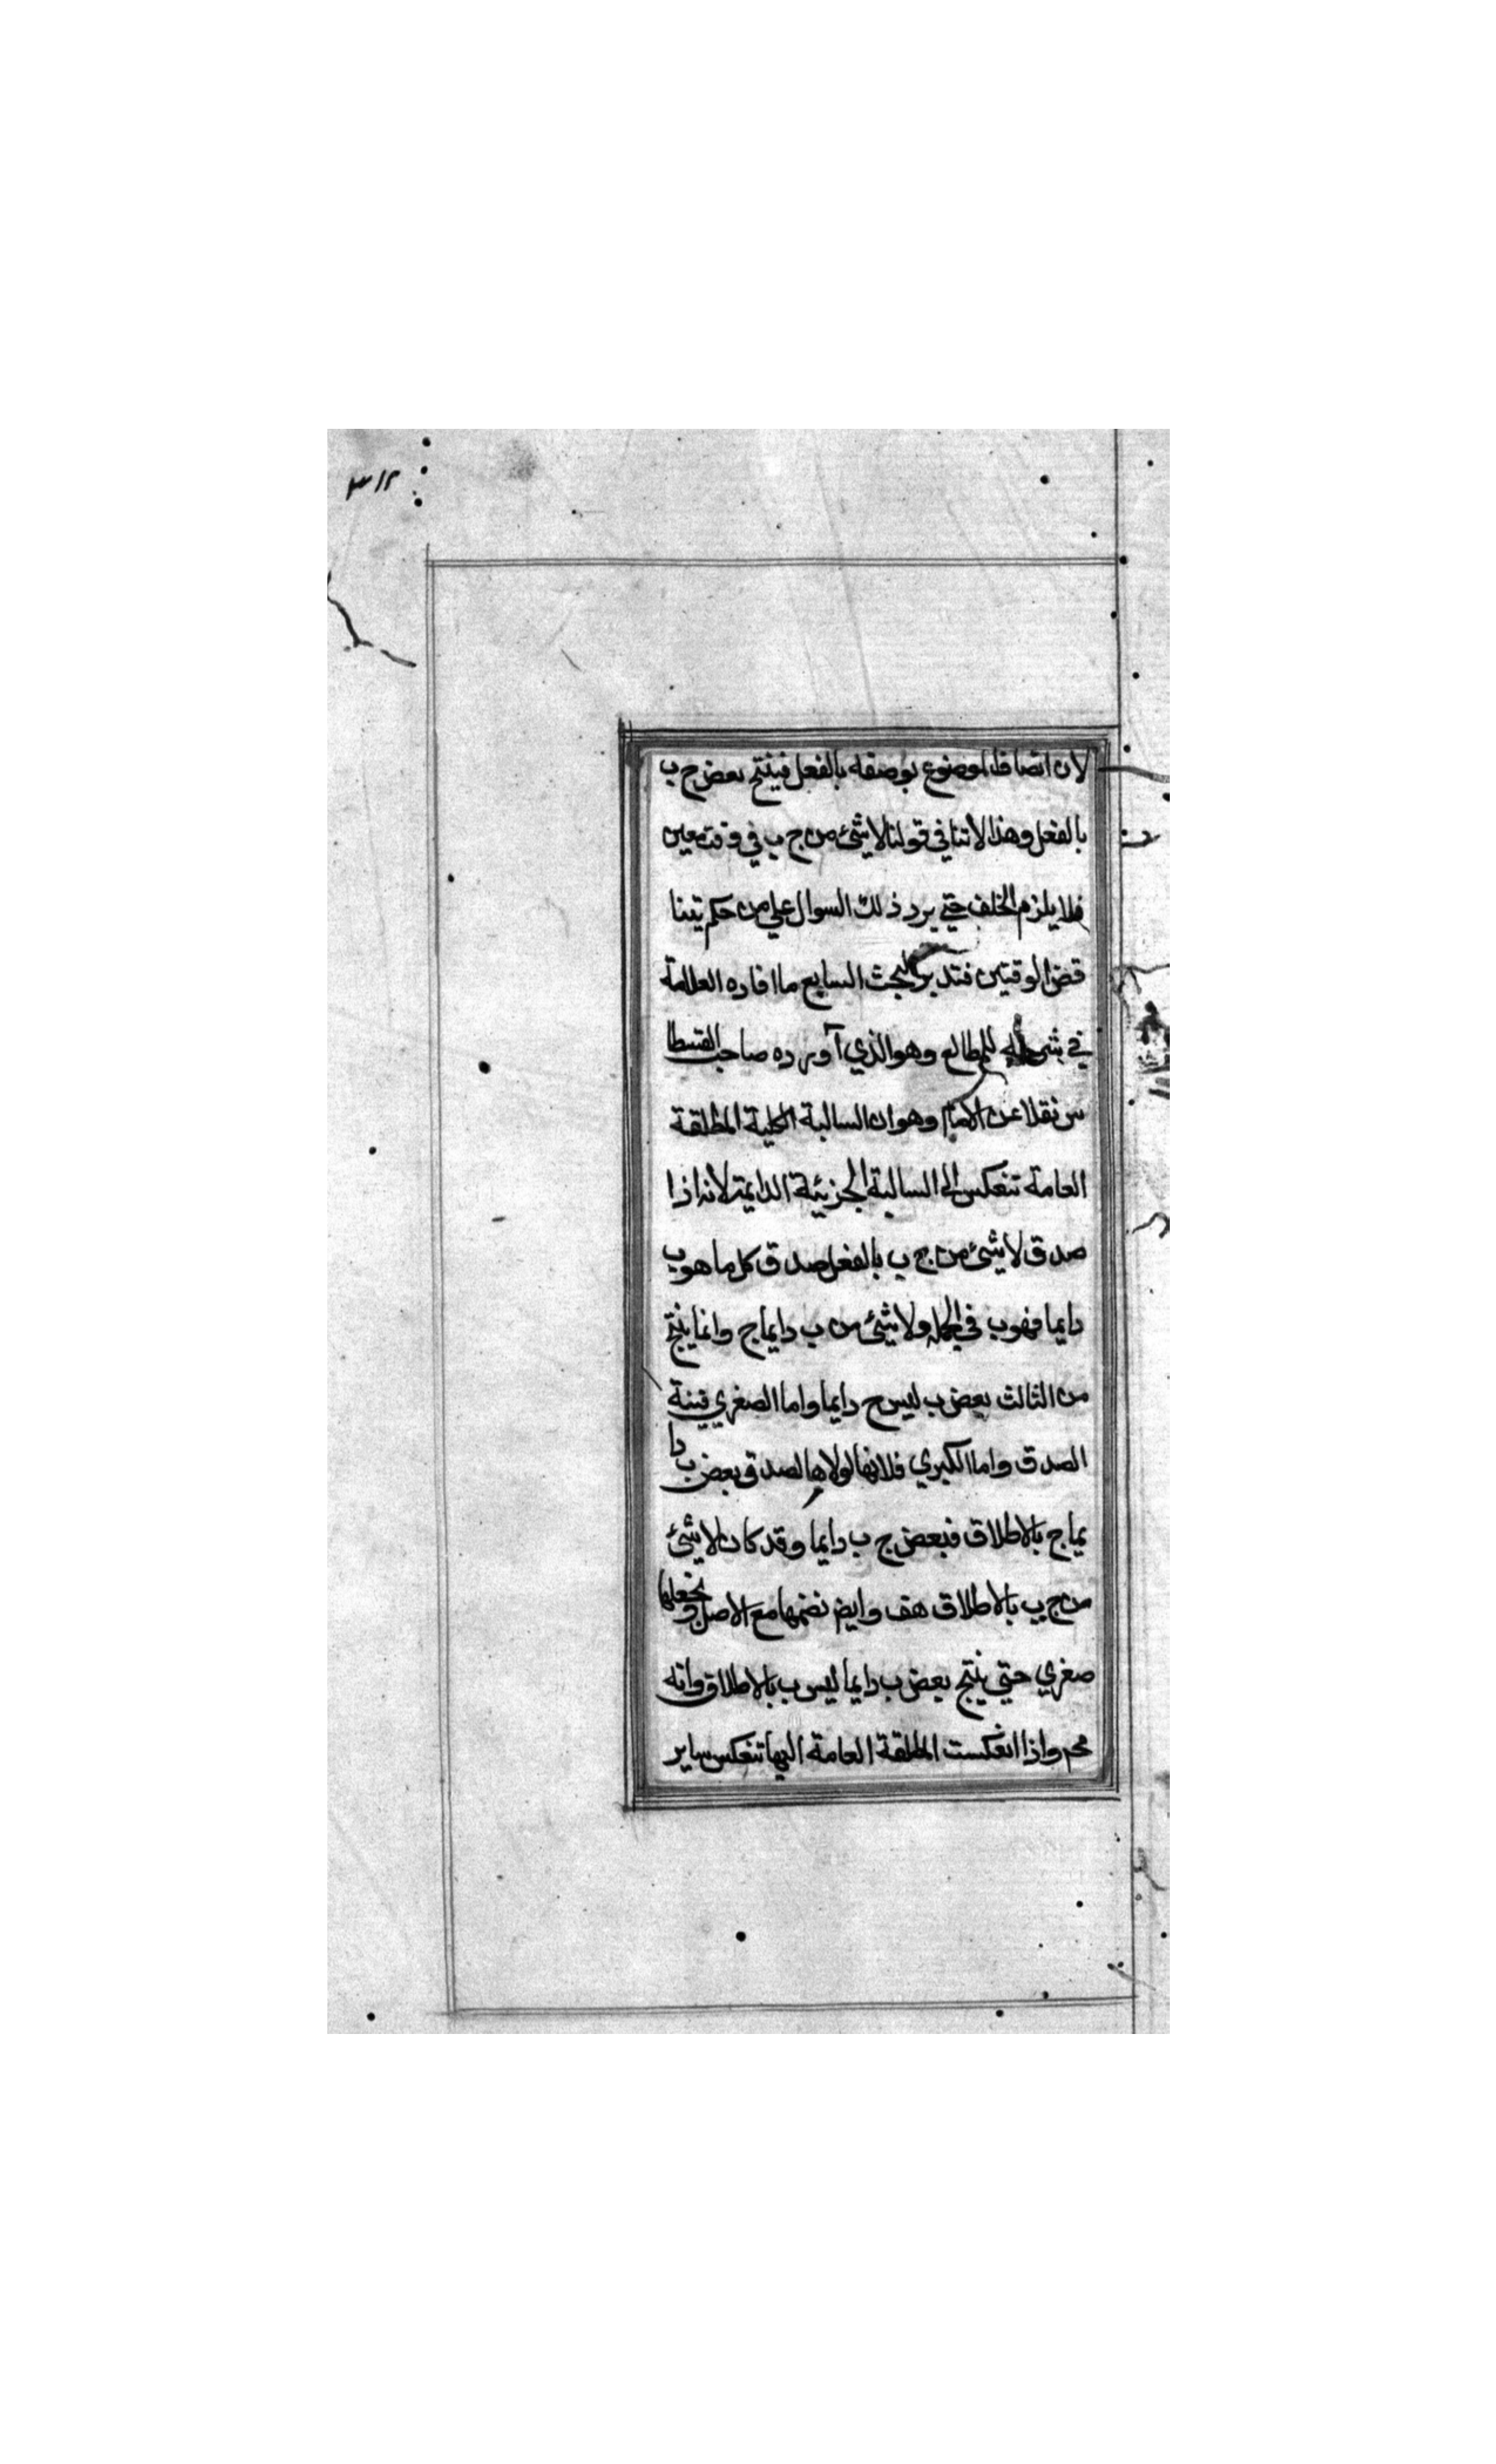 ٣١٢
لان اتصاف الموضوع بوصفه بالفعل فينتج بعض ج ب
بالفعل وهذا لا تنافي قولنا لا شئ من ج ب في وقت معين
فلا يلزم الخلف حتي يرد ذلك السوال علي من حكم بتنا
قض الوقتيتين فتدبر البحث السابع ما افاده العلامة
في شرحه للمطالع وهو الذي آورده صاحب القسطا
س نقلا عن الامام وهو ان السالبة الكلية المطلقة
العامة تنعكس الي السالبة الجزئية الدايمة لانه اذا
صدق لا شئ من ج ب بالفعل صدق كل ما هو ب
دايما فهو ب في الجملة ولا شئ من ب دايما ج وانما ينتج
من الثالث بعض ب ليس ج دايما واما الصغري فبينة
الصدق واما الكبري فلانها لولاها لصدق بعض ب دا
يما ج بالاطلاق فبعض ج ب دايما وقد كان لا شئ
من ج ب بالاطلاق هف وايض نضمها مع الاصل ونجعلها
صغري حتي ينتج بعض ب دايما ليس ب بالاطلاق وانه
مح واذا انعكست المطلقة العامة اليها تنعكس ساير